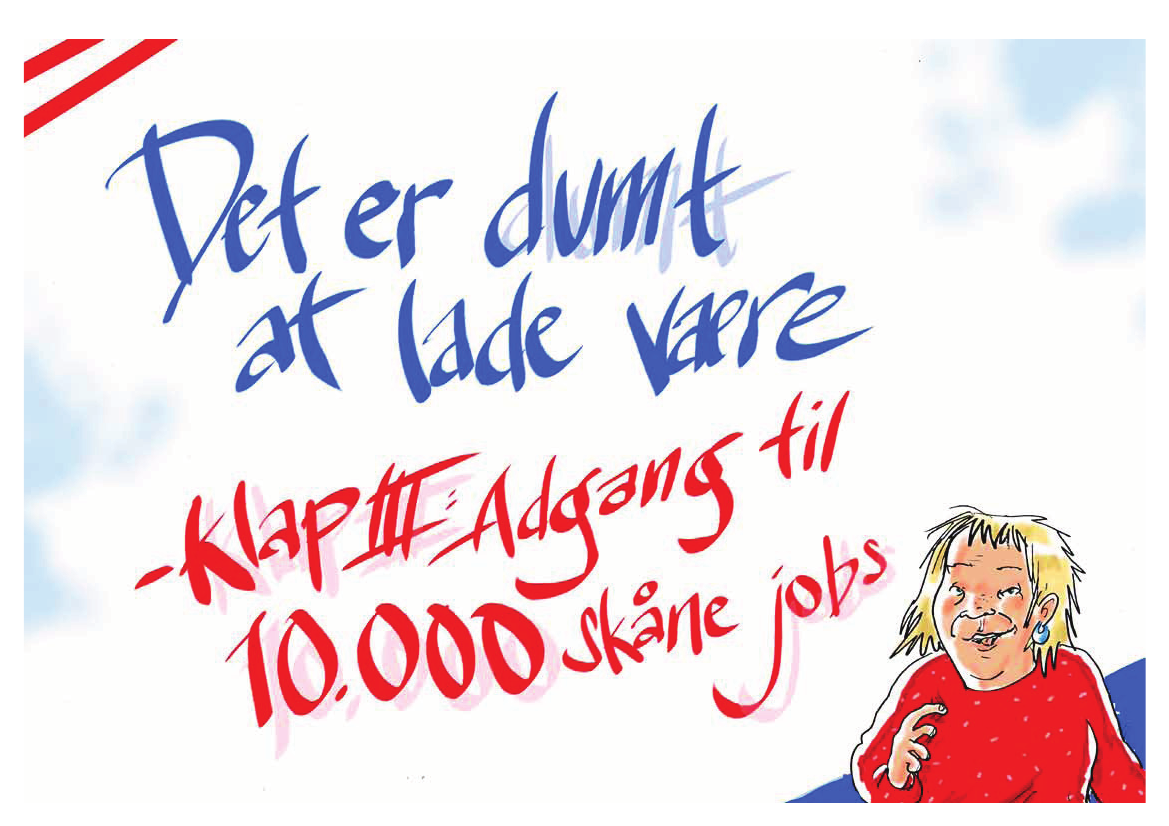 Det er dumt
at lade være
-Klap III: Adgang til
10.000 skåne jobs